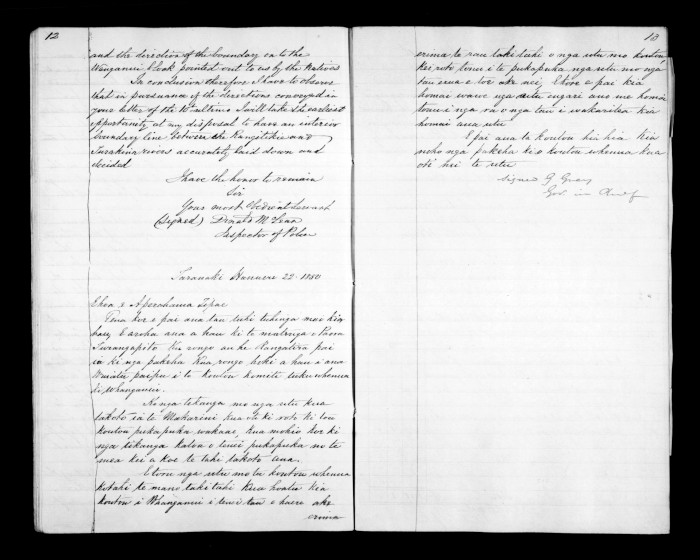 12
and the direction of the boundary on to the
Wanganui block pointed out to us by the Natives
In conclusion therefore I have to observe
that in pursuance of the directions conveyed in
your letter of the 10th ultimo I will take the earliest
opportunity at my disposal to have an interior
boundary line between the Rangitikei and
Turakina rivers accurately laid down and
decided
I have the honor to remain
Sir
Your most Obedient Servant
(Signed) Donald McLean
Inspector of Police
Taranaki Hanuere 22. 1850
E hoa e Aperahama Tipae
Tena koe e pai ana tau tuhi tuhinga mai kia
hau, E aroha ana a hau ki te matenga o Paora
Turangapito He rongo au he Rangatira pai
ia ki nga pakeha Kua rongo hoki a hau i ana
i te koutou komete tuku whenua
ki Whanganui.
Ko nga tikanga mo nga utu kua
takoto ia te Makarini kua oti ki roto ki tou
koutou pukapuka wakaae, kua mohio koe ki
nga tikanga katoa o tenei pukapuka no te
mea kei a koe te tahi takoto ana.
E tou nga utu mo to koutou whenua
kotahi te mano takitahi kua hoatu kia
koutou i Whanganui i tenei tau e haere ake
erima
13
erima te rau takitahi o nga utu mo koutou
kei roto tenei i te pukapuka nga utu mo nga
tau erua e toe ake nei, E kore e pai kia
homai wawe nga utu engari ano me homai
tonu i nga ra o nga tau i wakaritea kia
homai aua utu
E pai ana ta koutou hia hia kia
noho nga pakeha ki o koutou whenua kua
oti nei te utu
Signed G Grey
Gov. in Chief